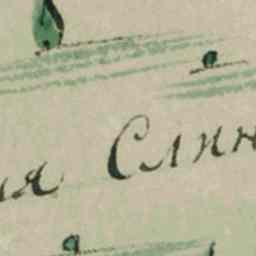 ия Слин